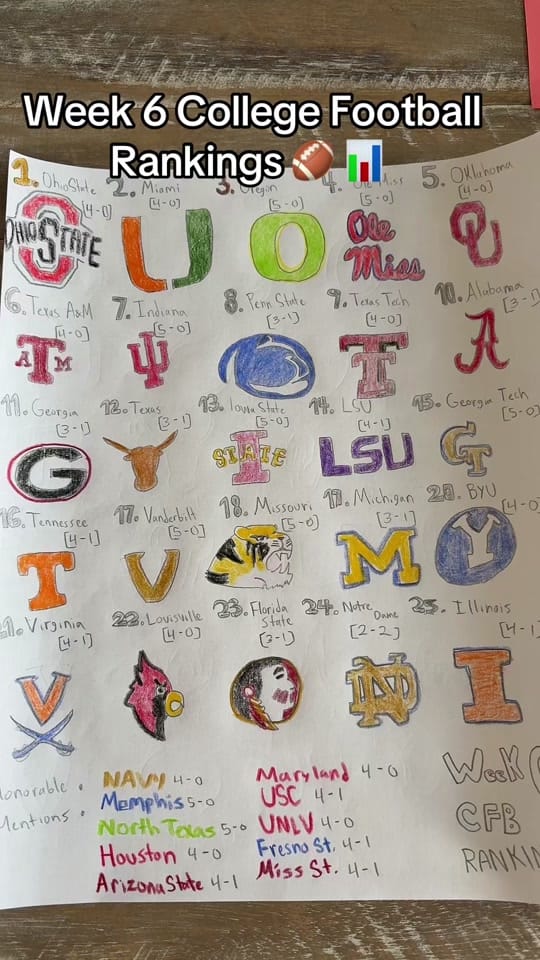 Week 6 College Football
Rankings 🏈 📊
1. Ohio State 2. Miami 3. Oregon 4. Ole Miss 5. Oklahoma
[4-0] [4-0] [5-0] [5-0] [4-0]
OHIO STATE U O Ole Miss OU
6. Texas A&M 7. Indiana 8. Penn State 9. Texas Tech 10. Alabama
[4-0] [5-0] [3-1] [4-0] [3-1]
ATM IU TT A
11. Georgia 12. Texas 13. Iowa State 14. LSU 15. Georgia Tech
[3-1] [3-1] [5-0] [4-1] [5-0]
G I STATE LSU GT
16. Tennessee 17. Vanderbilt 18. Missouri 19. Michigan 20. BYU
[4-1] [5-0] [5-0] [3-1] [4-0]
T V M Y
21. Virginia 22. Louisville 23. Florida State 24. Notre Dame 25. Illinois
[4-1] [4-0] [3-1] [2-2] [4-1]
V ND I
Honorable Mentions:
NAVY 4-0
Memphis 5-0
North Texas 5-0
Houston 4-0
Arizona State 4-1
Maryland 4-0
USC 4-1
UNLV 4-0
Fresno St. 4-1
Miss St. 4-1
Week
CFB
RANKIN